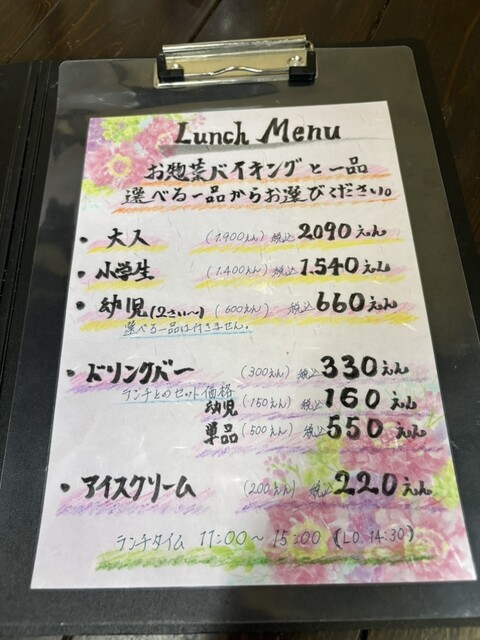 Lunch Menu
お惣菜バイキングと一品
選べる一品からお選びください。
・大人 (1.900えん) 税込 2090えん
・小学生 (1.400えん) 税込 1.540えん
・幼児(2さい〜) (600えん) 税込 660えん
選べる一品は付きません。
・ドリンクバー (300えん) 税込 330えん
ランチとのセット価格
幼児 (150えん) 税込 160えん
単品 (500えん) 税込 550えん
・アイスクリーム (200えん) 税込 220えん
ランチタイム 11:00〜15:00 (L.O. 14:30)